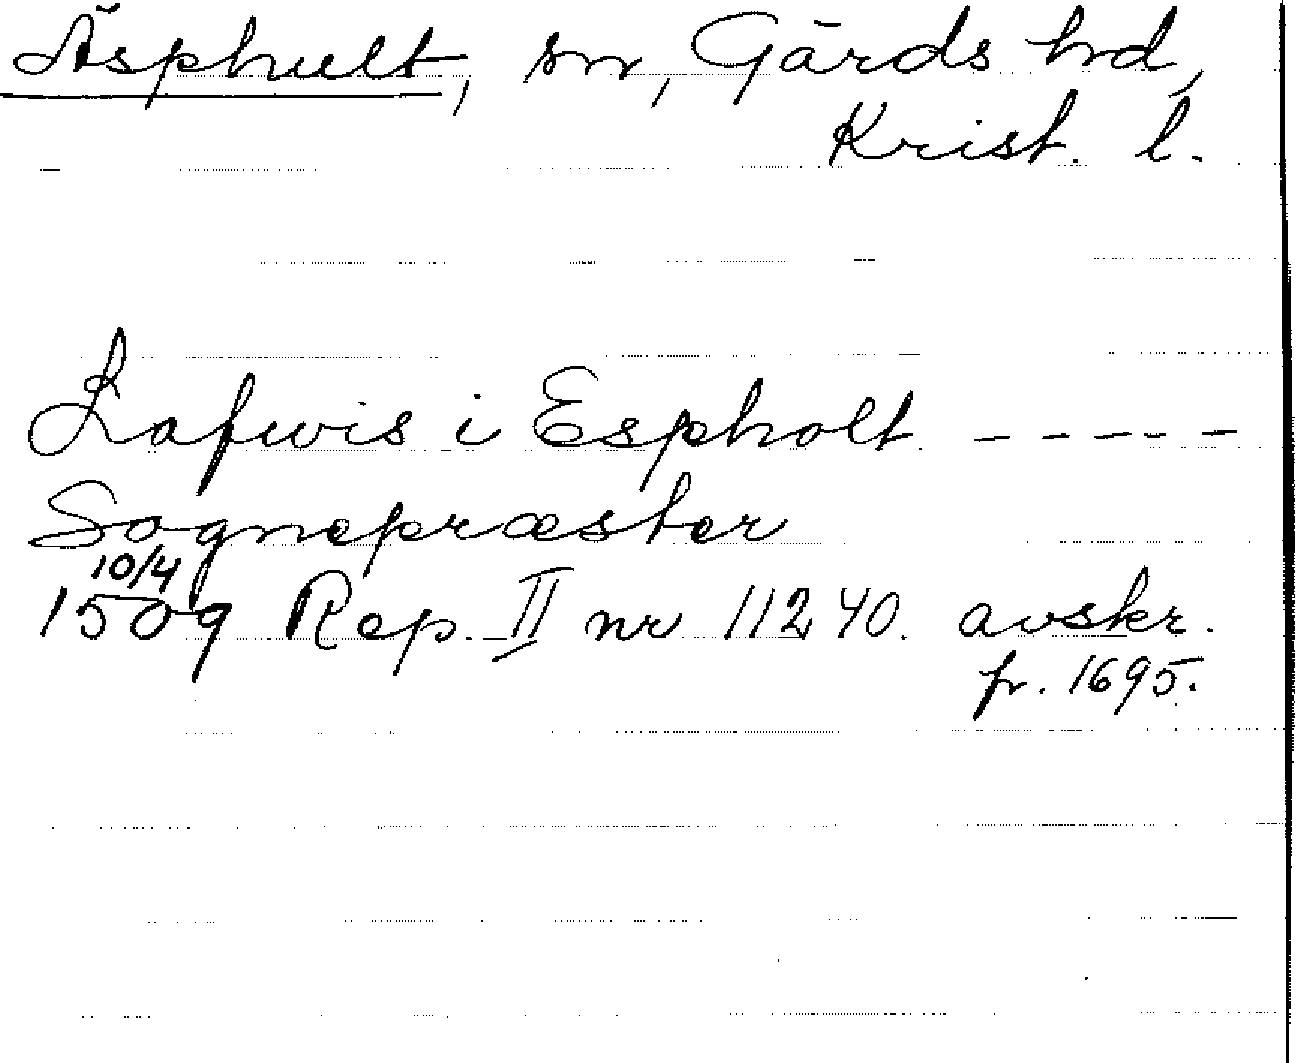 Äsphult, sn, Gärds hd,
Krist. l.
Lafwis i Espholt - - - - -
Sognepræster
10/4
1509 Rep. II nr 11240. avskr.
fr. 1695.